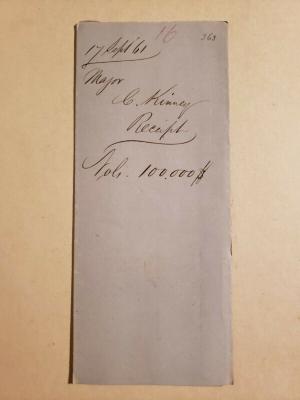 16
363
17 Sept 61
Major
C. Kinney
Receipt
Vols. 100.000 $